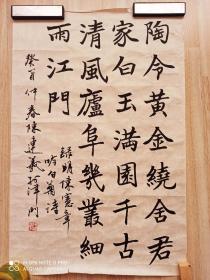 陶令黃金繞舍君
家白玉滿園千古
清風廬阜幾叢細
雨江門
錄明陳憲章
吟白菊詩
癸酉仲春陳連義於津門